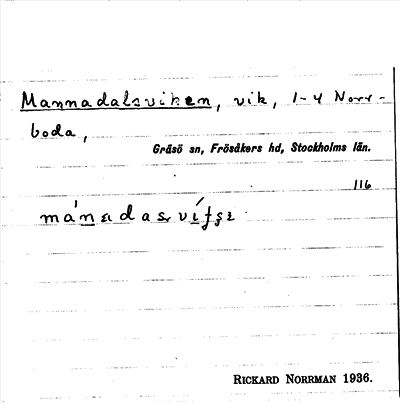 Mannadalsviken, vik, 1-4 Norr-
boda,
Gräsö sn, Frösåkers hd, Stockholms län.
116
RICKARD NORRMAN 1936.